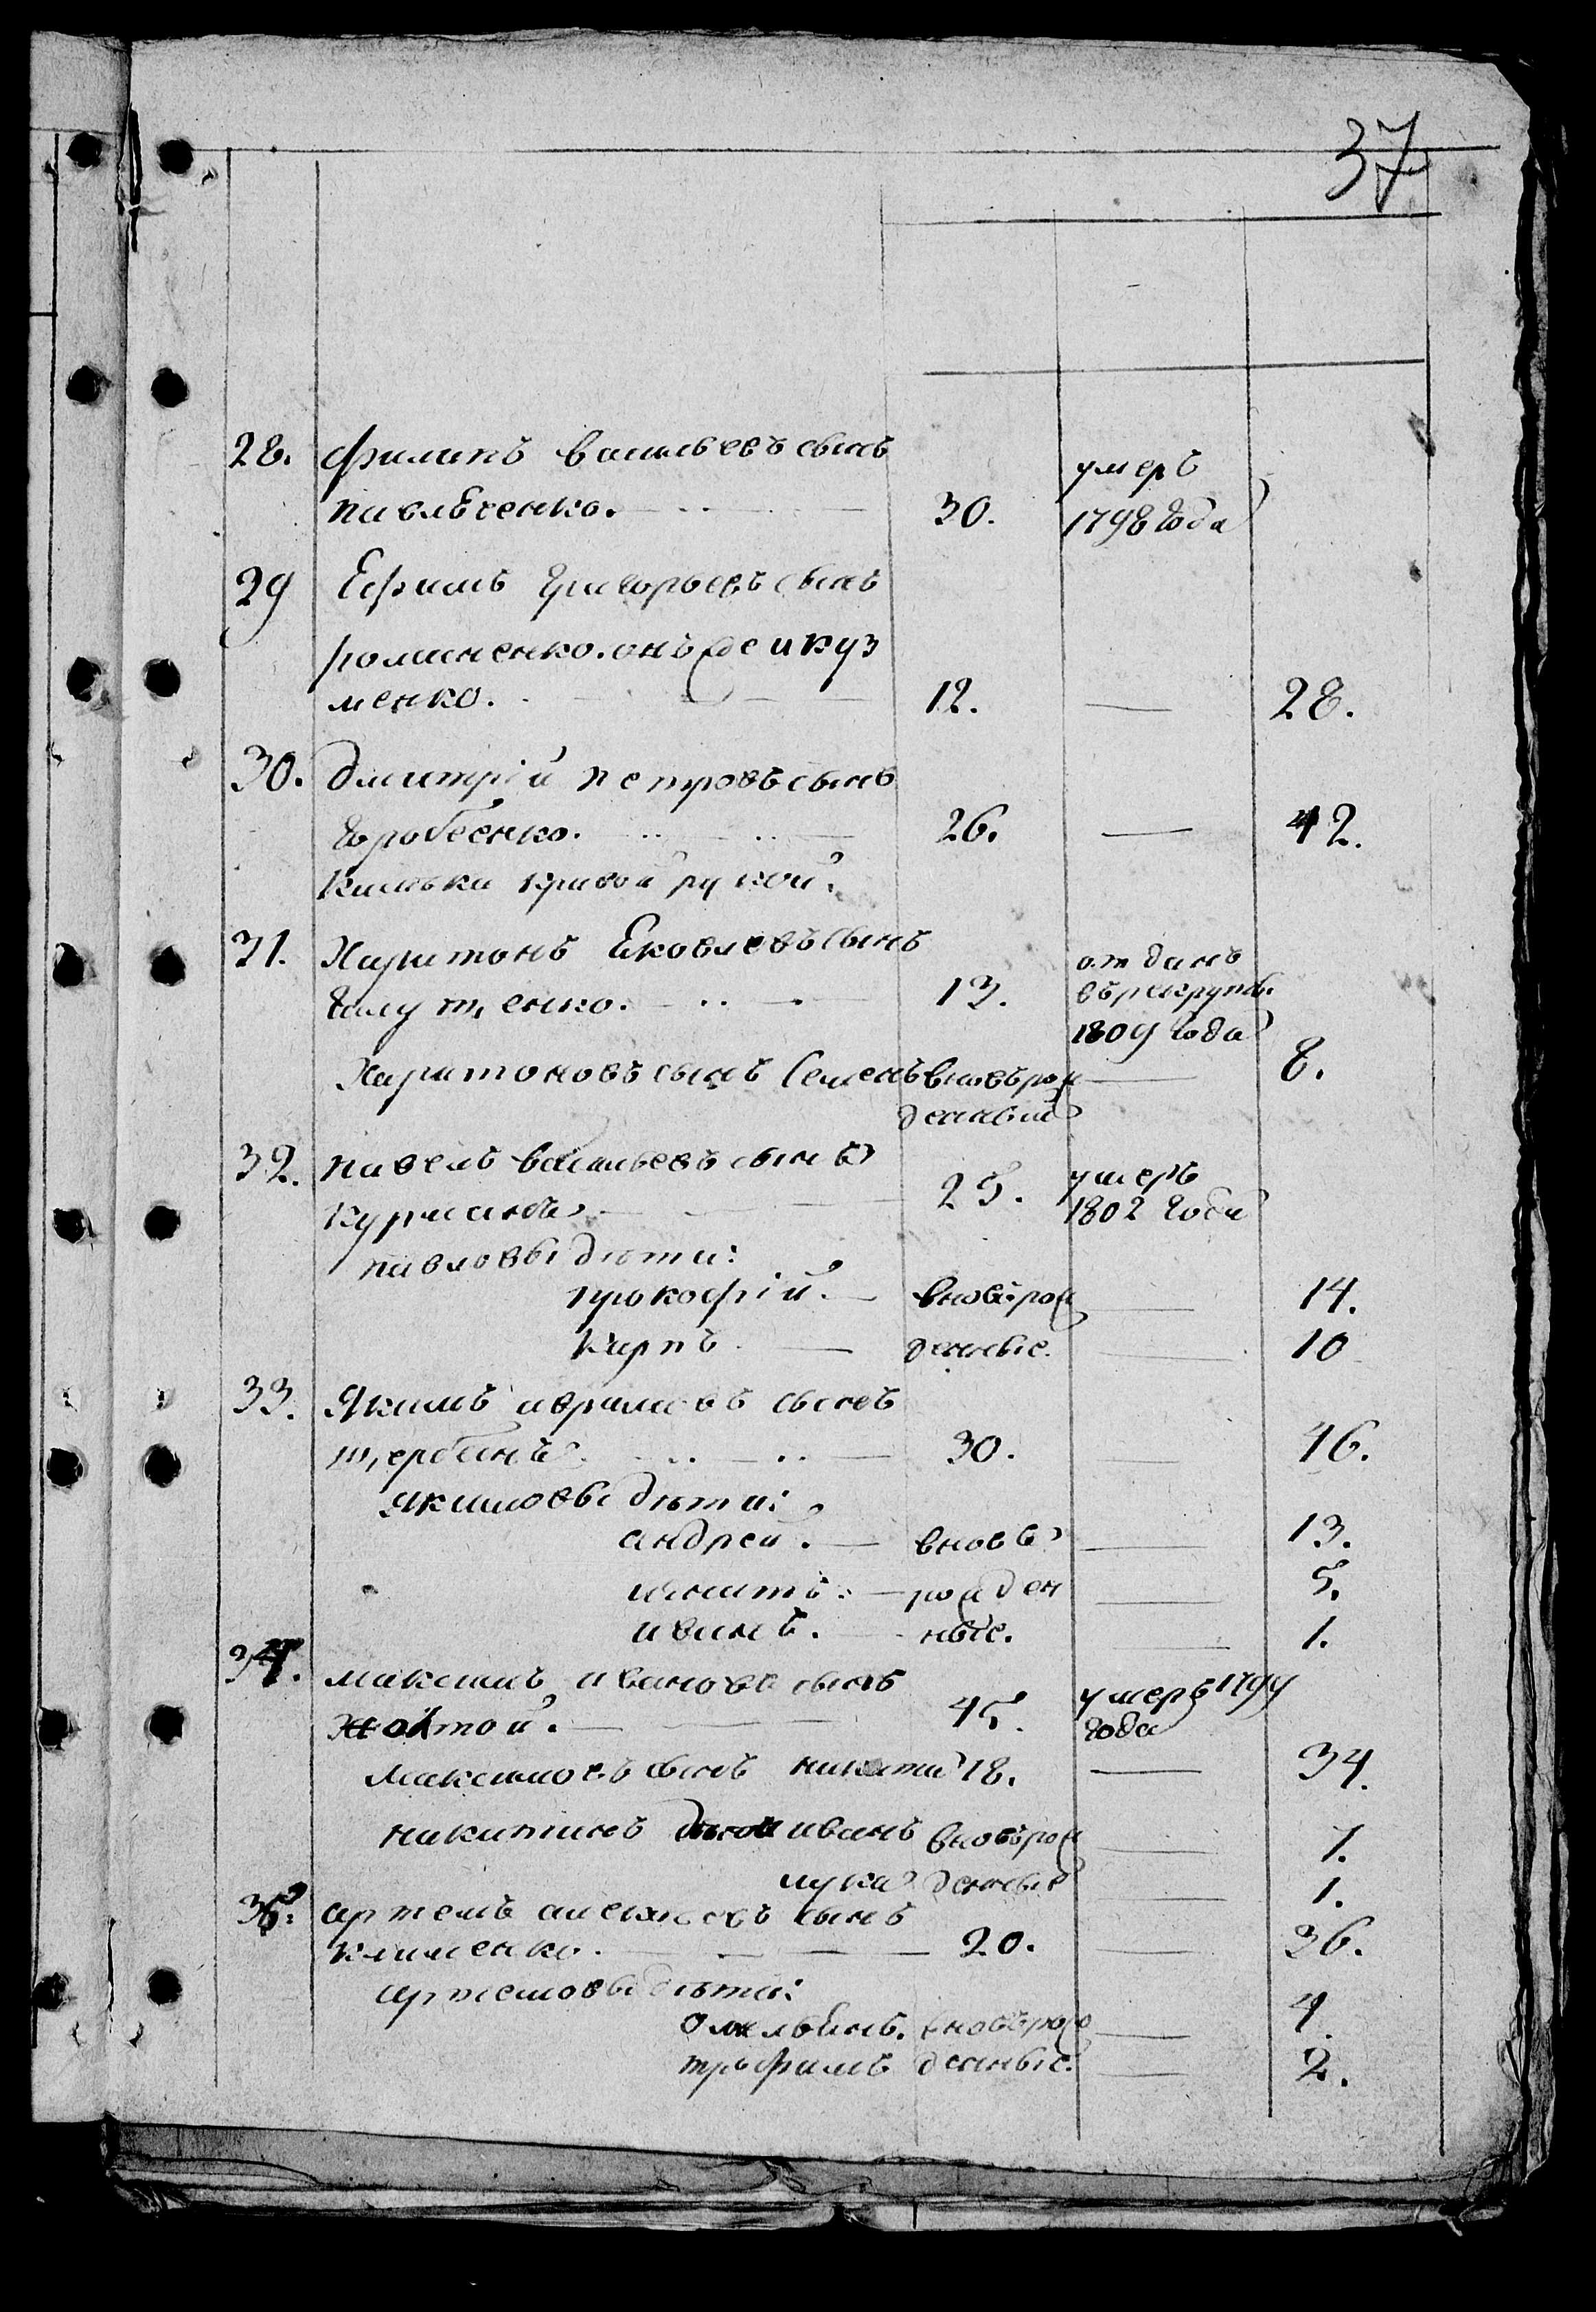 37
28. Филипъ васильевъ сынъ
павлѣченко. 30. умеръ 1798 года
29 Ефимъ Григорьевъ сынъ
романенко. онъ же и куз
менко. 12. — 28.
30. Дмитрій петровъ сынъ
Горобеенко. 26. — 42.
калѣка кривой рукой.
31. Харитонъ Яковлевъ сынъ
Галущенко. 13. отданъ въ рекруты 1809 года
Харитоновъ сынъ Семенъ вновь рож — 8.
денный
32. павелъ васильевъ сынъ
курманъ 25. умеръ 1802 года
павловы дѣти:
прокофій. — вновь рож — 14.
карпъ — денные. — 10
33. Якимъ аврамовъ сынъ
щербанъ 30. — 46.
якимовы дѣти:
андрей. — вновь — 13.
игнатъ. — рожден — 5.
иванъ. — ные. — 1.
34. максимъ ивановъ сынъ
жолтой. — 45. умеръ 1799 года
максимовъ сынъ никита 18. — 34.
никитинъ иванъ вновь рож — 7.
лука денные — 1.
35. артемъ алексѣевъ сынъ
клименко. — 20. — 36.
артемовы дѣти:
Омельянъ. вновь рож — 4.
трофимъ денные. — 2.